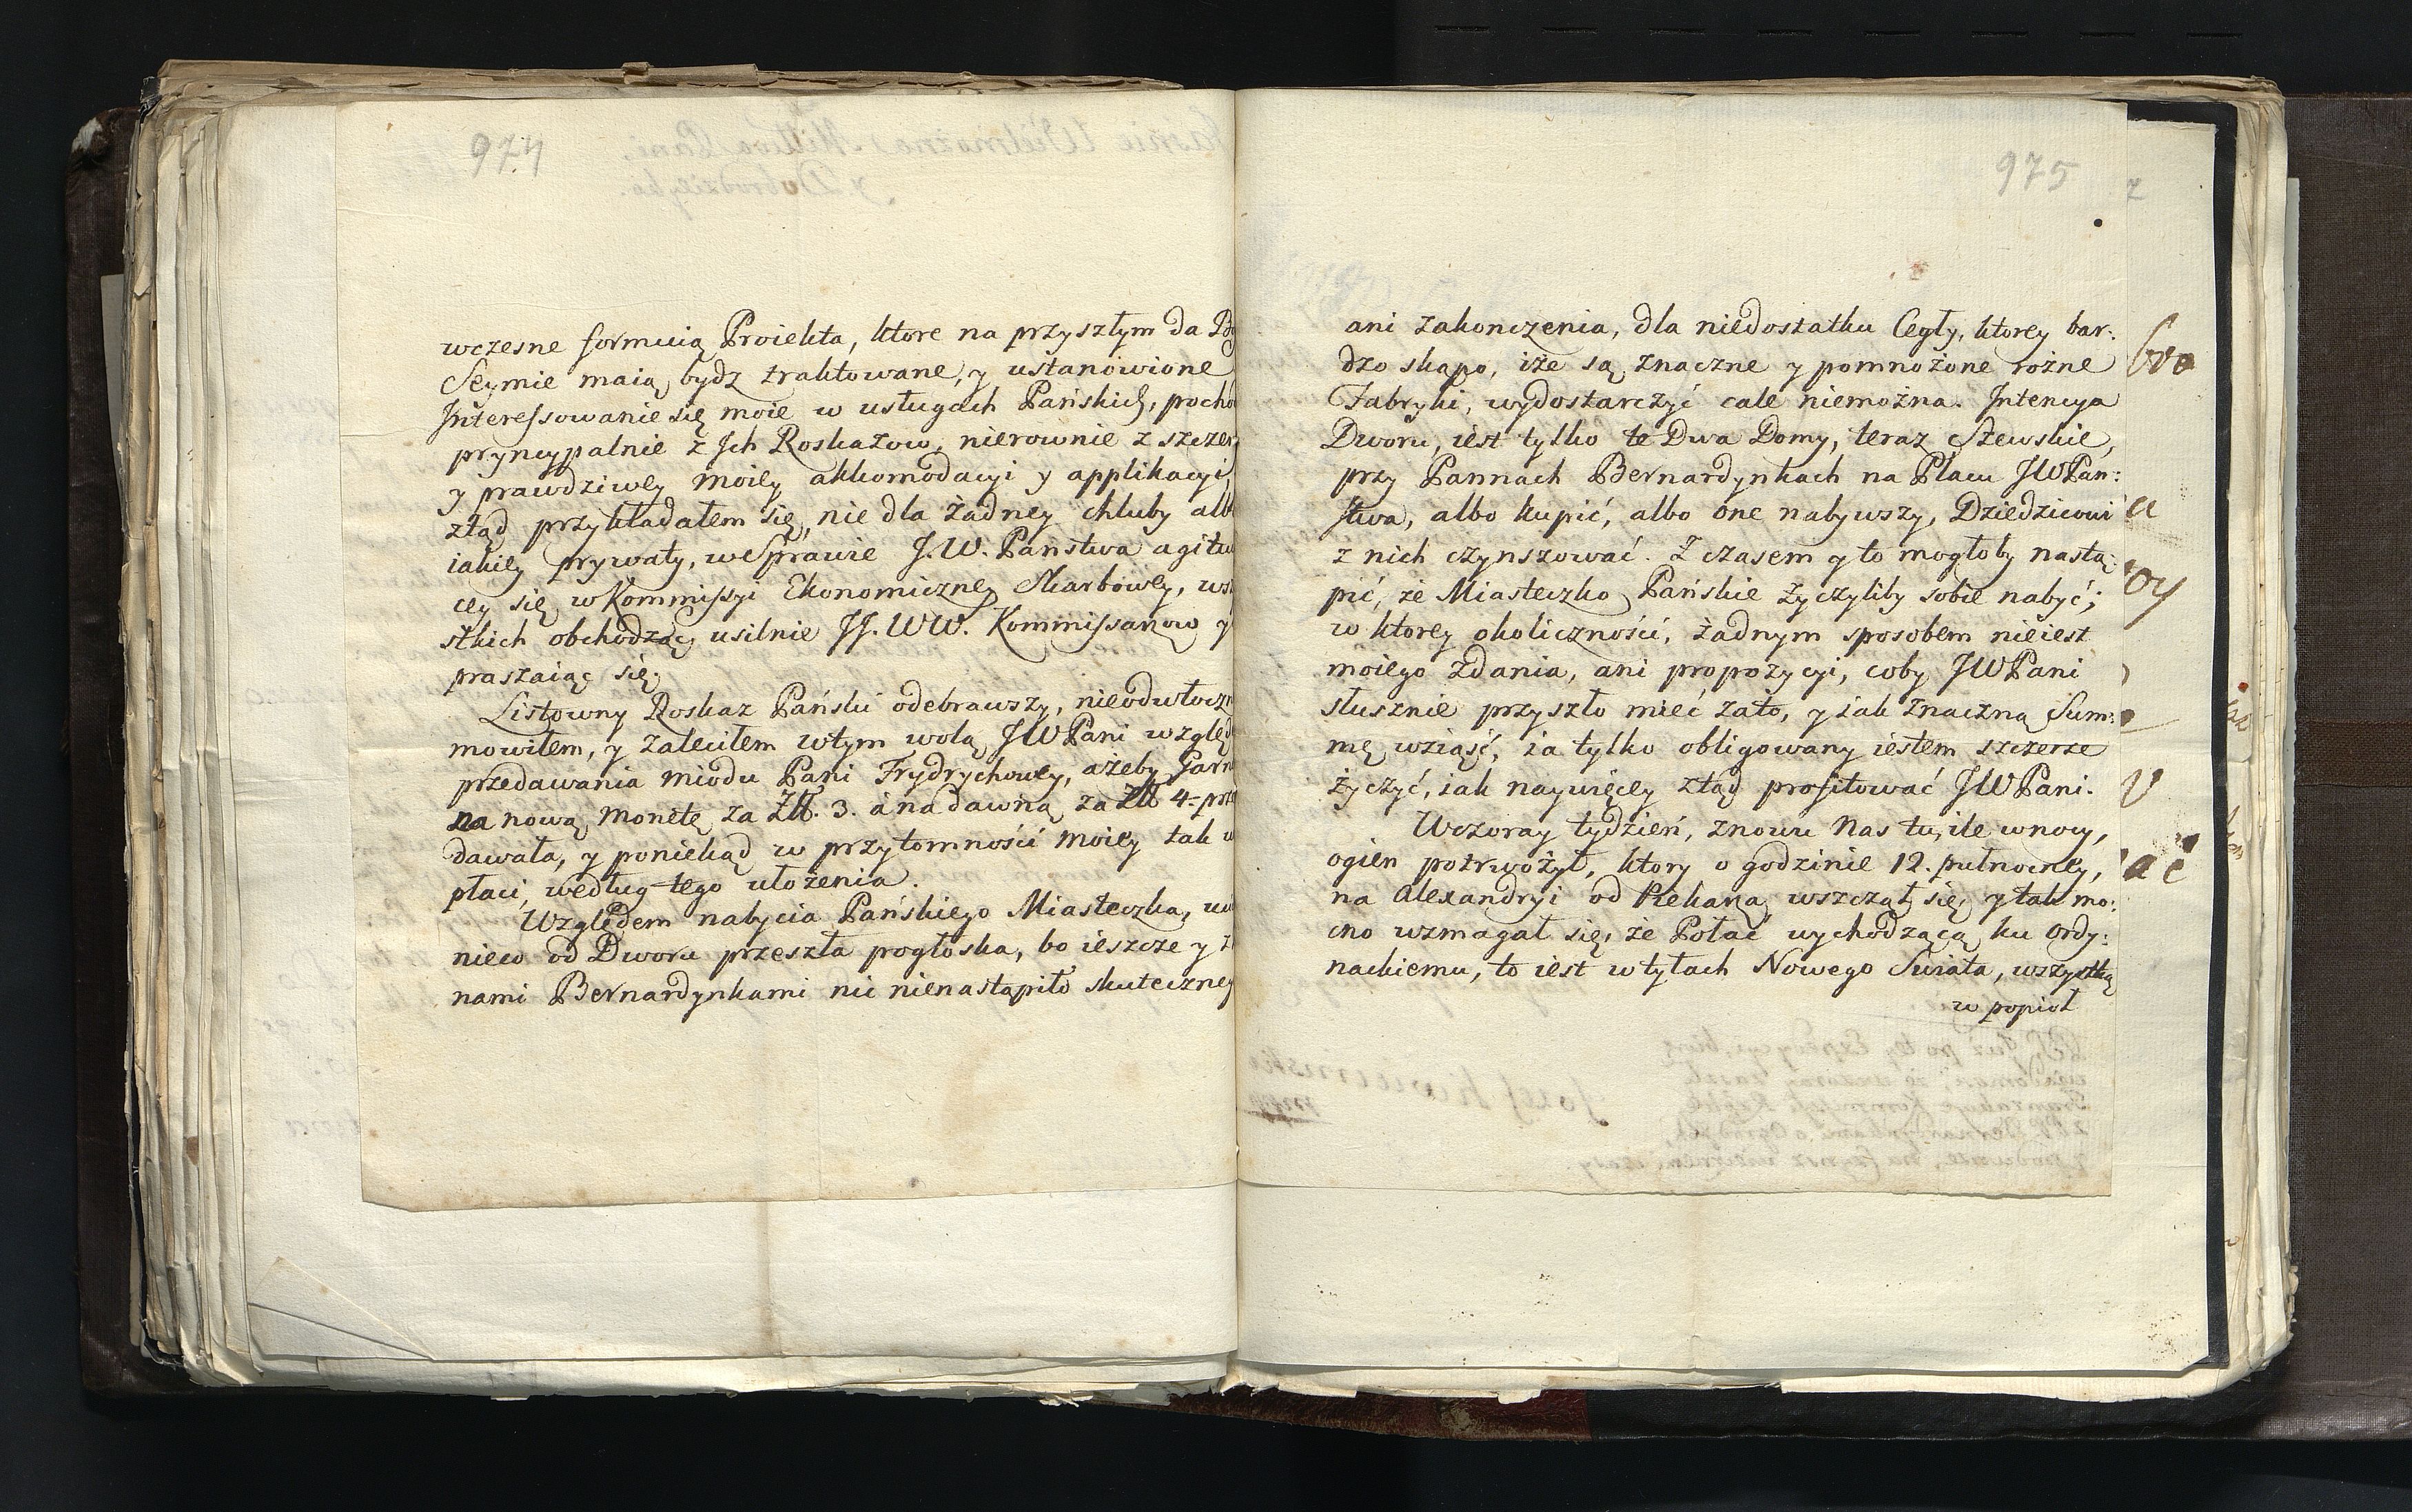 974
wczesne formuią Proiekta, ktore na przyszłym da Bo
Seymie maią bydz traktowane, y ustanowione
Interessowanie się moie w usługach Pańskich, pocho
pryncypalnie z Ich Roskazow, nierownie z szczer
y prawdziwey moiey akkomodacyi y applikacyi,
ztąd przykładałem się, nie dla żadney chluby alb
iakiey prywaty, we Sprawie J.W. Państwa agitu
cey się w Kommissyi Ekonomiczney Skarbowey, ws
stkich obchodząc usilnie JJ. WW. Kommissarzow y
praszaiąc się.
Listowny Roskaz Pański odebrawszy, nieodwłoczn
mowiłem, y zaleciłem wtym wolą JWPani wzglę
przedawania miodu Pani Frydrychowey, ażeby Garn
na nową monetę za Zł. 3. á na dawną za Zł 4= prze
dawała, y poniekąd w przytomności moiey tak w
płaci, według tego ułożenia.
Względem nabycia Pańskiego Miasteczka, uci
nieco od Dworu przeszła pogłoska, bo ieszcze y z
nami Bernardynkami nic nienastąpiło skuteczneg
975
ani zakonczenia, dla niedostatku Cegły, ktorey bar:
dzo skąpo, iże są znaczne y pomnożone rożne
Fabryki, wydostarczyć cale niemożna. Intencya
Dworu, iest tylko te Dwa Domy, teraz Szewskie,
przy Pannach Bernardynkach na Placu JWPan:
stwa, albo kupić, albo one nabywszy, Dziedzicowi
z nich czynszować. Z czasem y to mogłoby nastą:
pić, że Miasteczko Pańskie życzyliby sobie nabyć;
w ktorey okoliczności, żadnym sposobem nieiest
moiego zdania, ani propozycyi, coby JWPani
słusznie przyszło mieć zato, y iak znaczną Sum:
mę wziąść, ia tylko obligowany iestem szczerze
życzyć, iak naywięcey ztąd profitować JWPani.
Wczoray tydzień, znowu Nas tu, ile wnocy,
ogien potrwożył, ktory o godzinie 12. pułnocney,
na Alexandryi od Piekarza wszczął się, y tak mo:
cno wzmagał się, że Połać wychodzącą ku Ordy:
nackiemu, to iest w tyłach Nowego Swiata, wszystką
w popioł